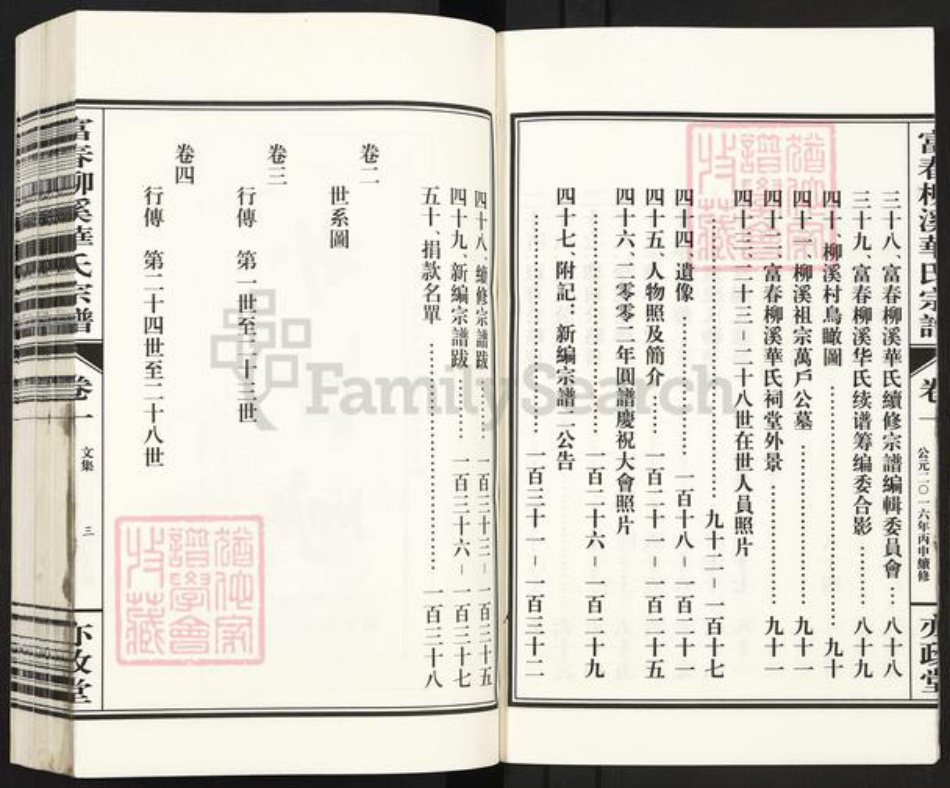 富春柳溪華氏宗譜
卷一
公元二〇一六年丙申續修
亦政堂
三十八、富春柳溪華氏續修宗譜編輯委員會 … 八十八
三十九、富春柳溪华氏续谱筹编委合影 …… 八十九
四十、柳溪村鳥瞰圖 …… 九十
四十一、柳溪祖宗萬戶公墓 …… 九十一
四十二、富春柳溪華氏祠堂外景 …… 九十一
四十三、二十三－二十八世在世人員照片
…… 九十二－一百十七
四十四、遺像 …… 一百十八－一百二十一
四十五、人物照及簡介 …… 一百二十一－一百二十五
四十六、二零零二年圓譜慶祝大會照片
…… 一百二十六－一百二十九
四十七、附記：新編宗譜二公告
…… 一百三十一－一百三十二
四十八、續修宗譜跋 …… 一百三十三－一百三十五
四十九、新編宗譜跋 …… 一百三十六－一百三十七
五十、捐款名單 …… 一百三十八
卷二
世系圖
卷三
行傳 第一世至二十三世
卷四
行傳 第二十四世至二十八世
富春柳溪華氏宗譜
卷一
文集
三
亦政堂
FamilySearch